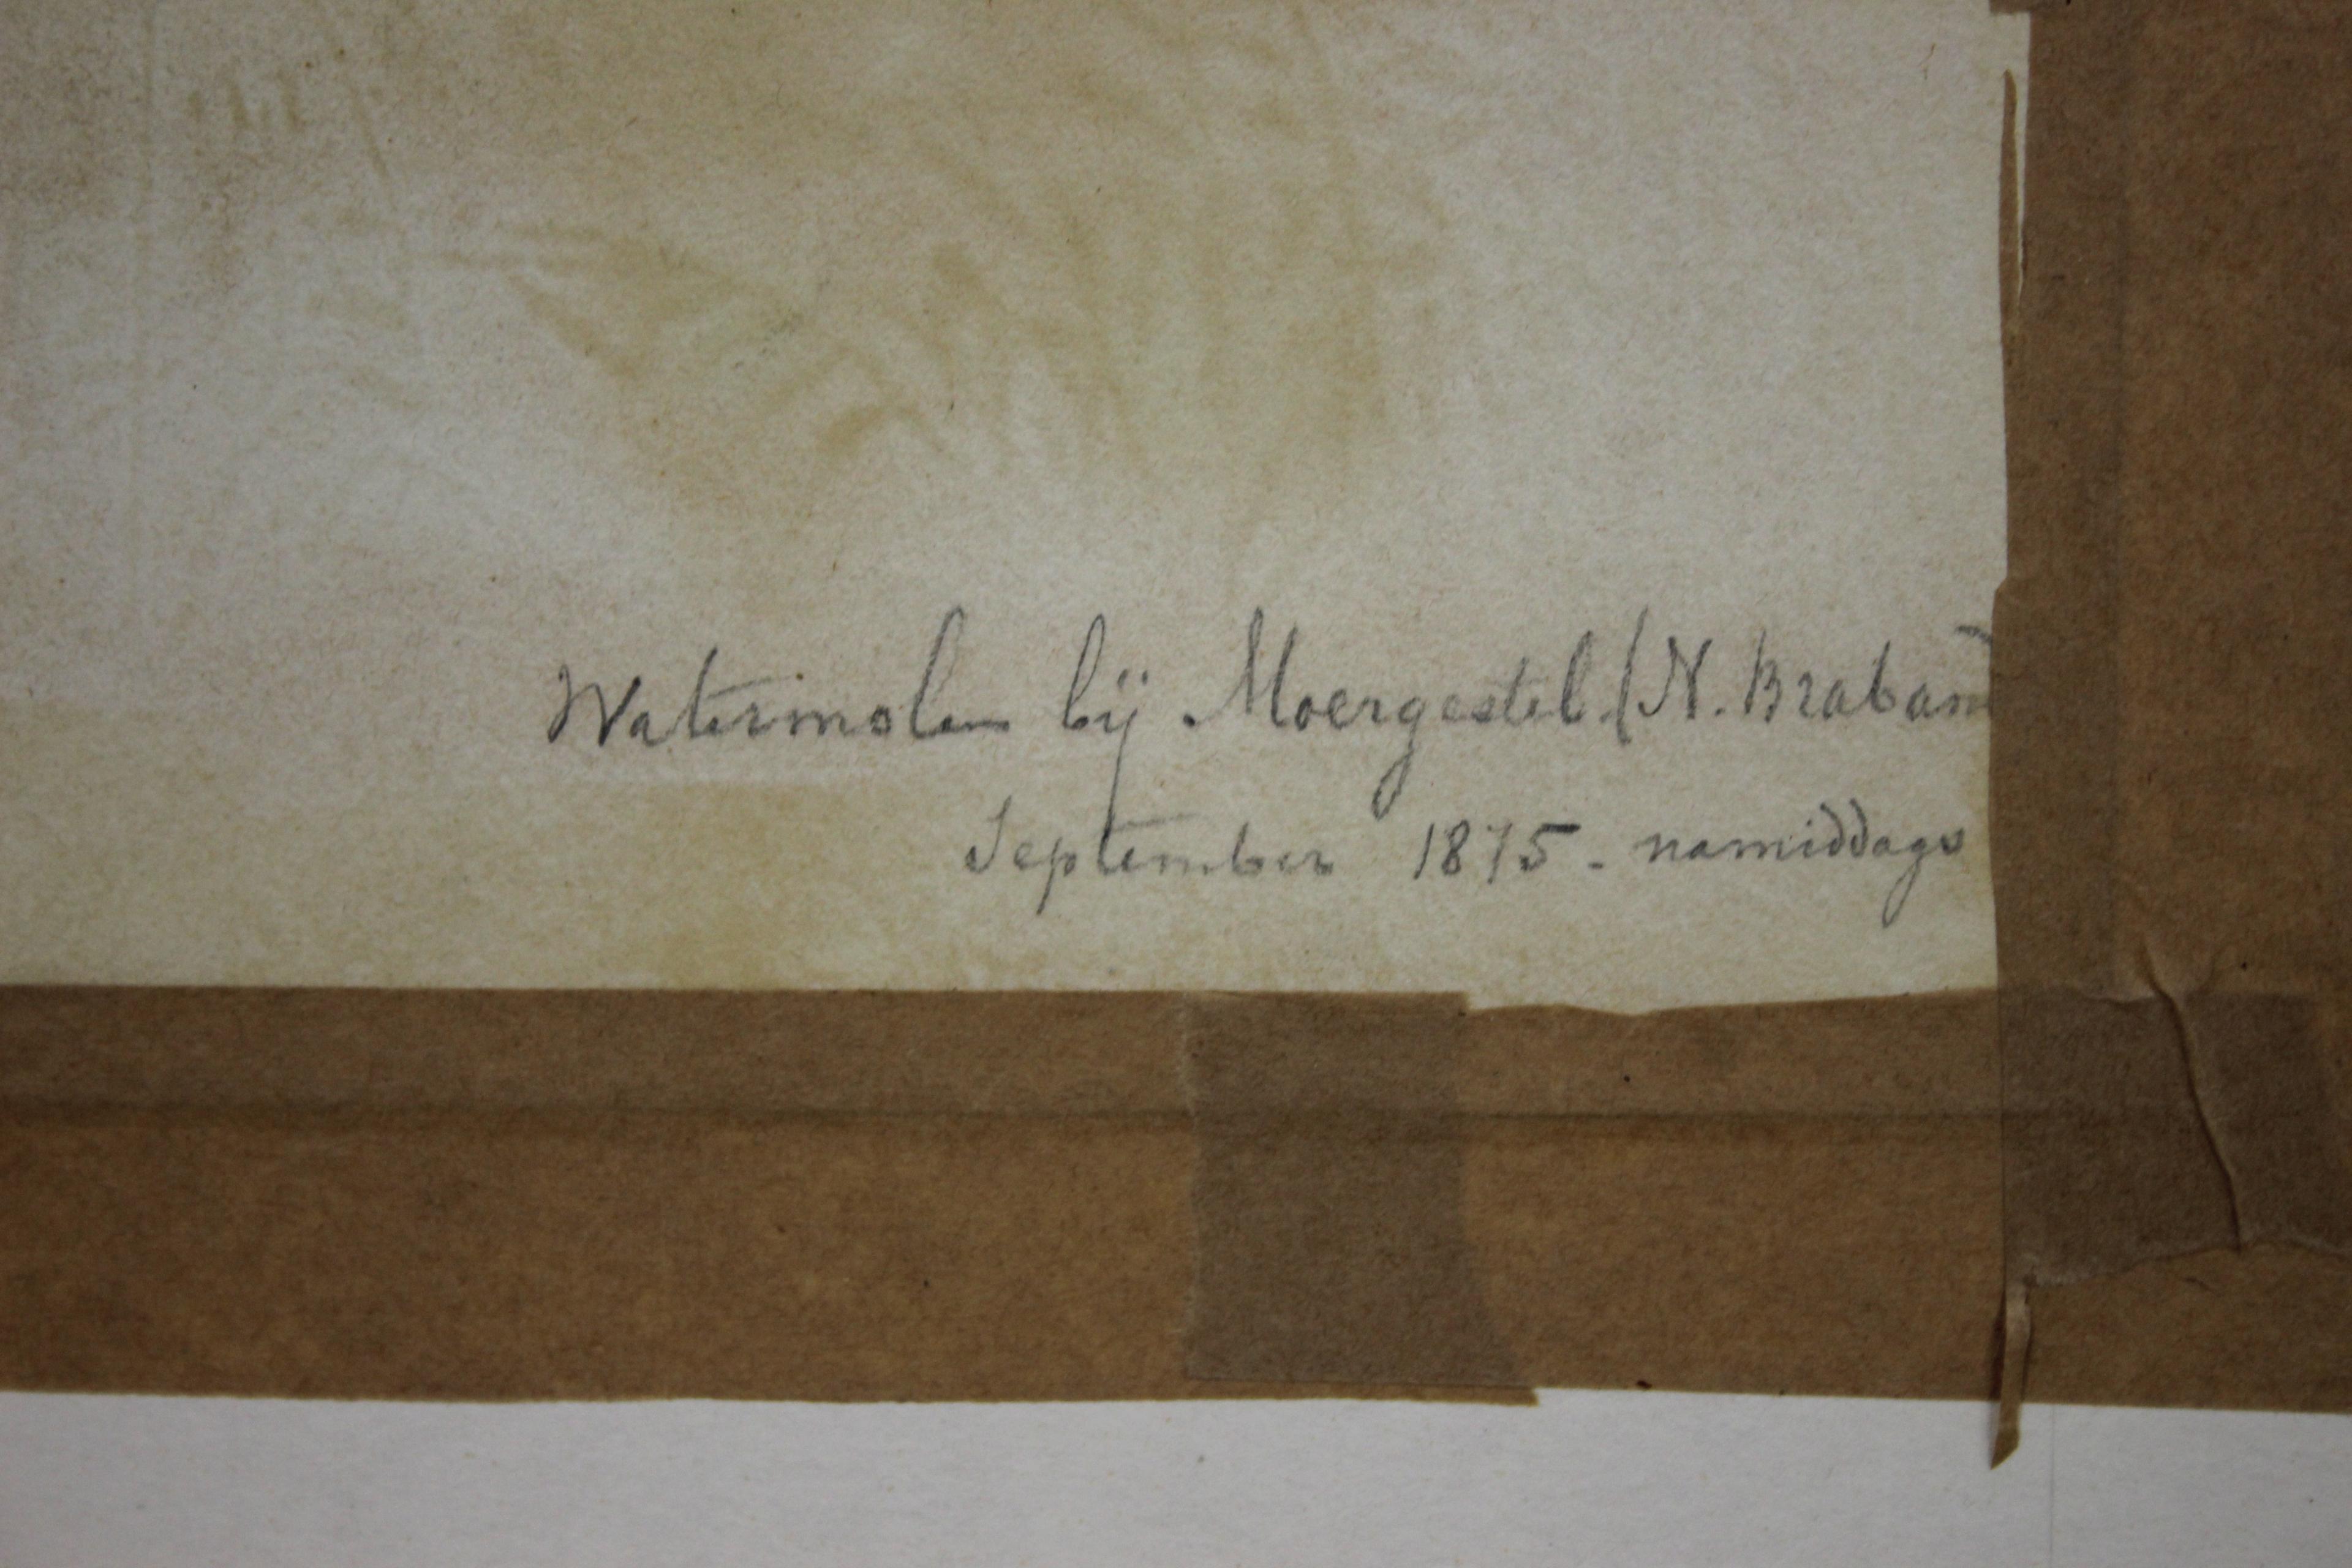 Watermolen bij Moergestel. (N. Braband
September 1875 - namiddags